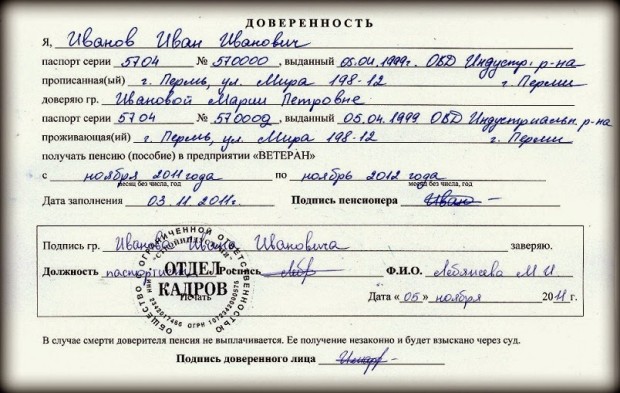 ДОВЕРЕННОСТЬ
Я, Иванов Иван Иванович
паспорт серии 5704 № 570000, выданный 05.04.1999г. ОВД Индустр. р-на
прописанная(ый) г. Пермь, ул. Мира 198-12 г. Перми
доверяю гр. Ивановой Марии Петровне
паспорт серии 5704 № 570009, выданный 05.04.1999 ОВД Индустриальн. р-на
проживающая(ий) г. Пермь, ул. Мира 198-12 г. Перми
получать пенсию (пособие) в предприятии «ВЕТЕРАН»
с ноября 2011 года по ноябрь 2012 года
месяц без числа, год месяц без числа, год
Дата заполнения 03.11.2011г. Подпись пенсионера
Подпись гр. Иванова Ивана Ивановича заверяю.
Должность Роспись Ф.И.О. М И
ОТДЕЛ КАДРОВ
Печать
ОБЩЕСТВО ОГРАНИЧЕННОЙ ОТВЕТСТВЕННОСТЬЮ
Дата «05» ноября 2011 г.
В случае смерти доверителя пенсия не выплачивается. Ее получение незаконно и будет взыскано через суд.
Подпись доверенного лица